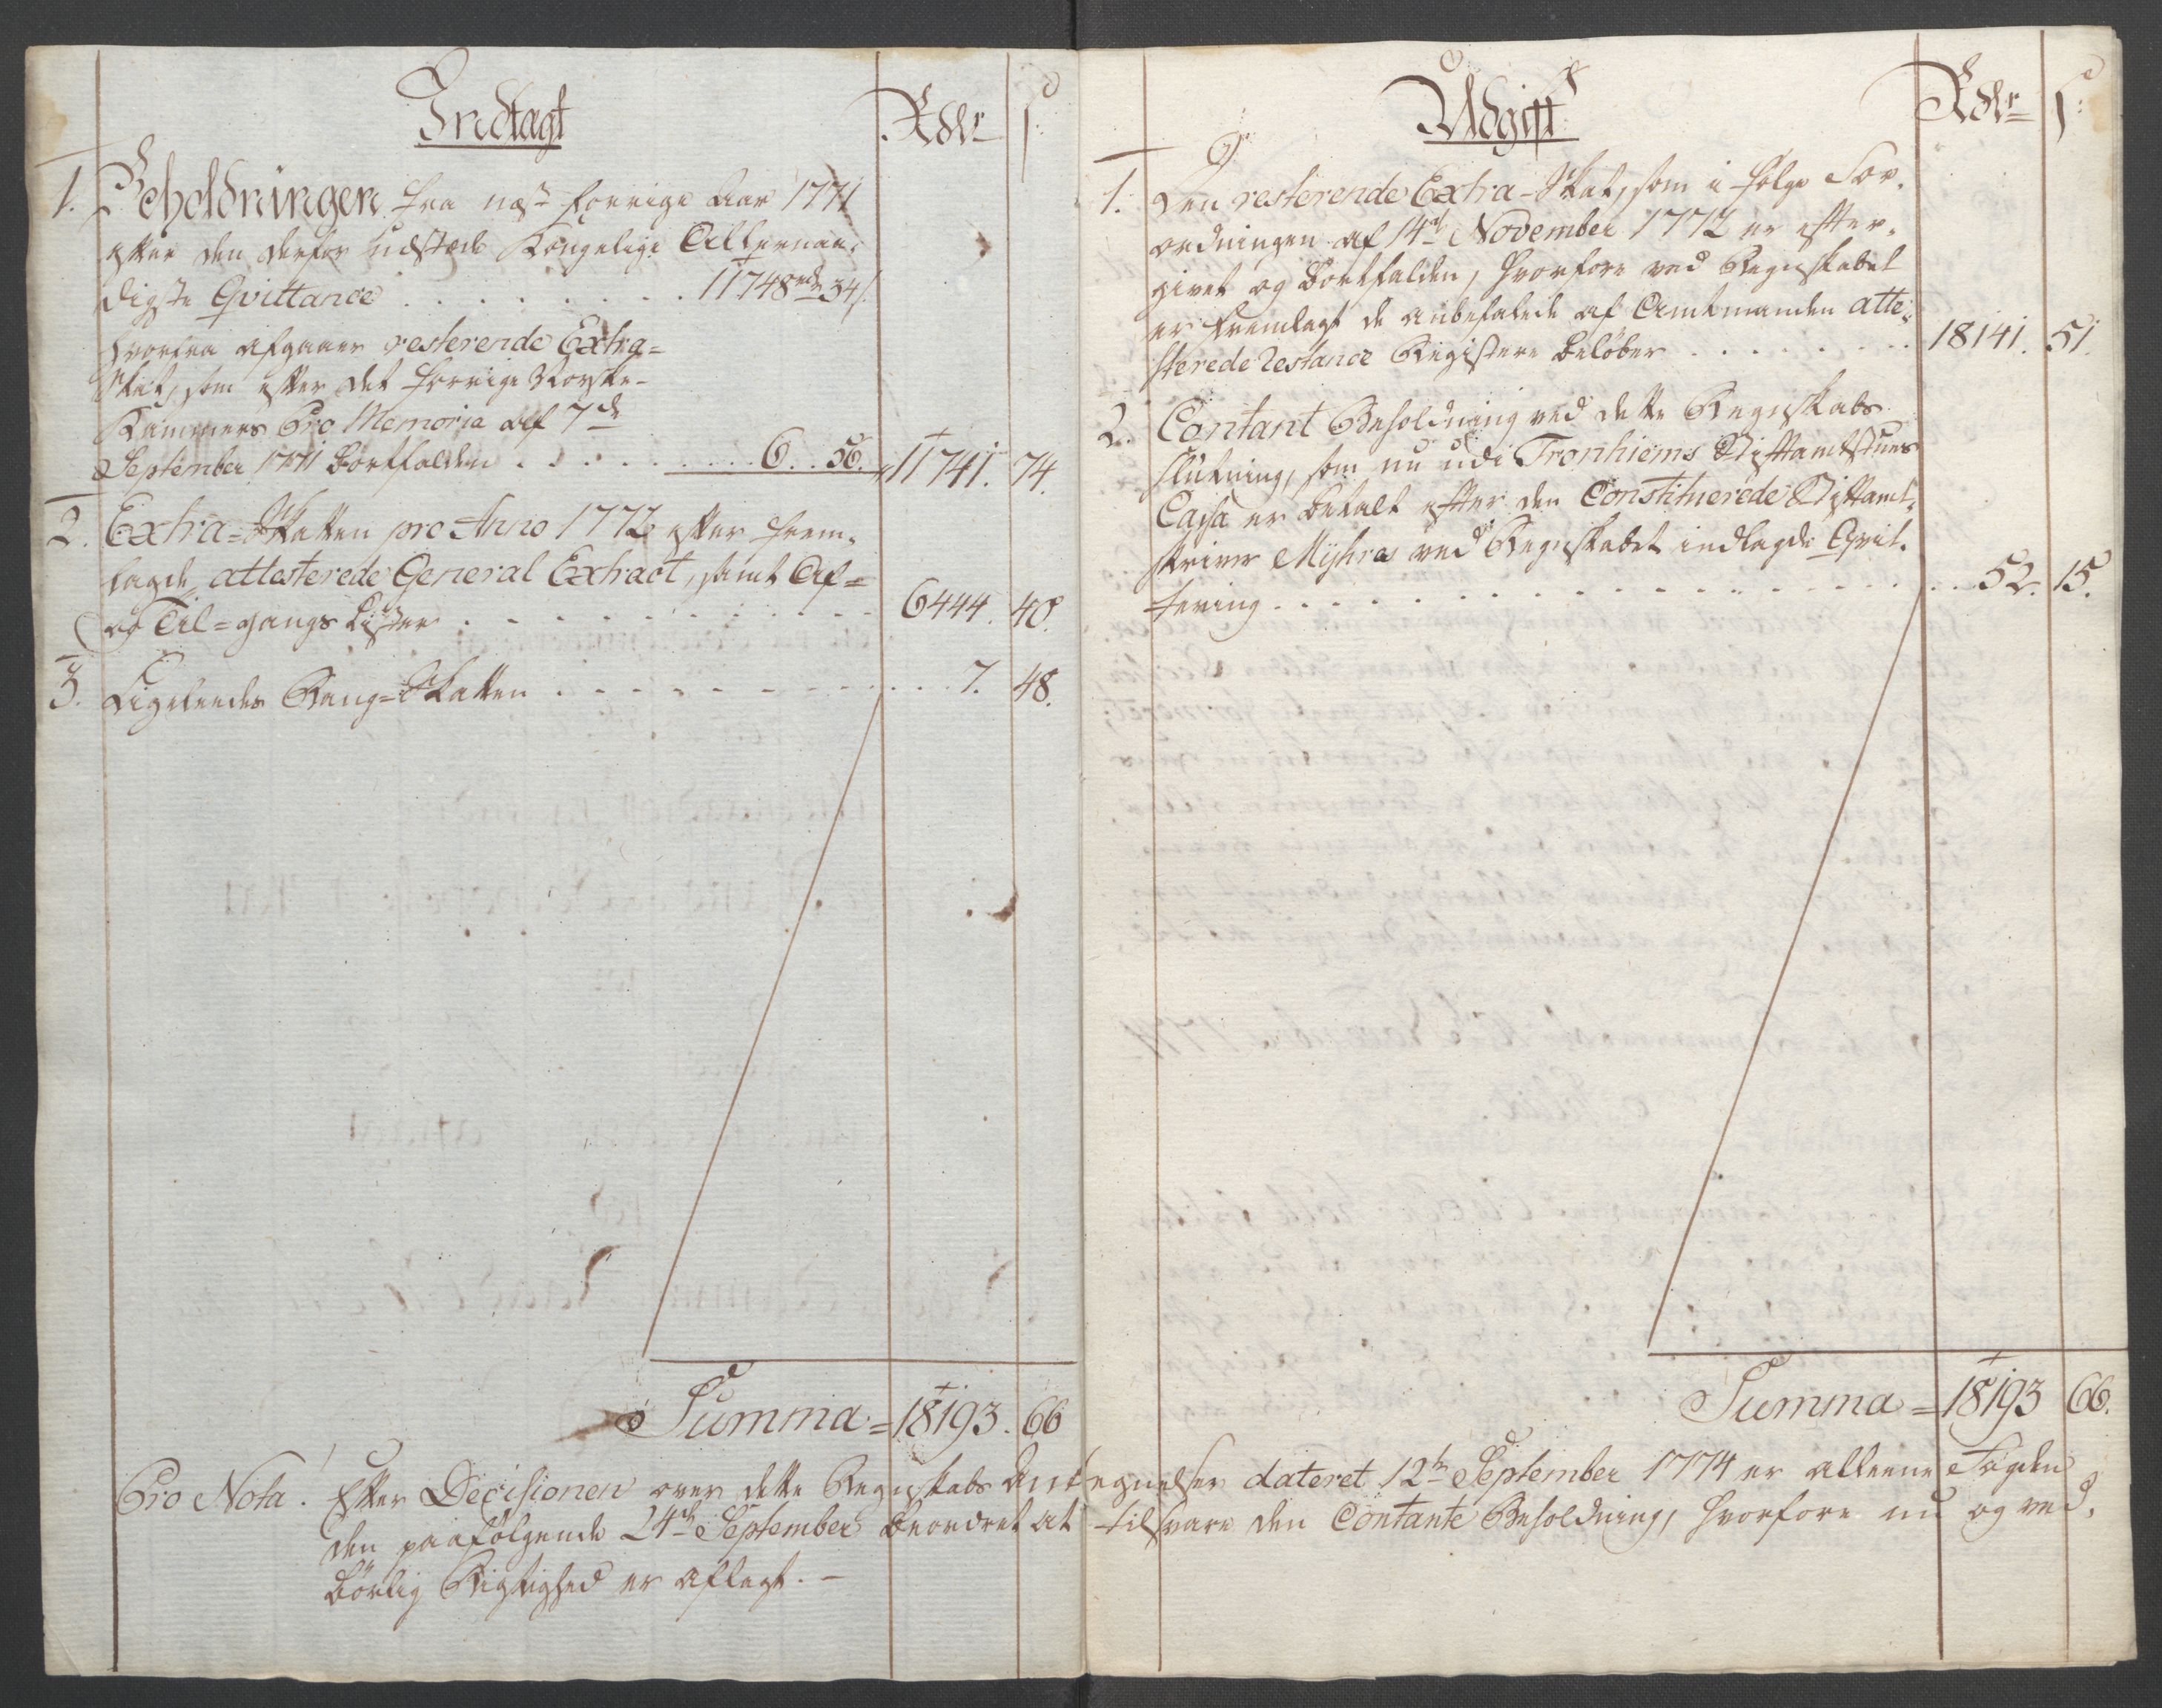 Indtagt
Rdlr
s:
1.
Beholdningen fra næst forrige Aar 1771
efter den derfor udstæde Kongelige Allernaa-
digste Qvittance . . . . . . . . 11748 rd 34 s.
hvorfra afgaaer resterende Extra=
Skat, som efter det forrige Norske-
Kammers Pro Memoria af 7de
September 1771 bortfalden . . . . . . . . 6. . 56. 11741. 74.
2.
Extra=Skatten pro Anno 1772 efter frem-
lagde attesterede General Extract, samt Af=
og Til=gangs Lister . . . . . . . . 6444. 40.
3.
Ligeleedes Rang=Skatten . . . . . . . . 7. 48.
Summa = 18193. 66
Udgift
Rdlr
s:
1.
Den resterende Extra-Skat, som i følge For-
ordningen af 14d November 1772 er efter-
givet og bortfalden, hvorfore ved Regnskabet
er fremlagt de anbefalede af Amtmanden atte-
sterede Restance Registere beløber . . . . . . . . 18141. 51.
2.
Contant Beholdning ved dette Regnskabs
slutning, som nu udi Tronhiems Stiftamtstues
Cassa er betalt efter den Constituerede Stiftamt-
skriver Myhres ved Regnskabet indlagde Qvit-
tering . . . . . . . . 52. 15.
Summa = 18193 66.
Pro Nota. Efter Decisionen over dette Regnskabs Antegnelser dateret 12te September 1774 er alleene Fogden
den paafølgende 24de September beordret at tilsvare den Contante Beholdning, hvorfore nu og ved-
børlig Rigtighed er aflagt. -